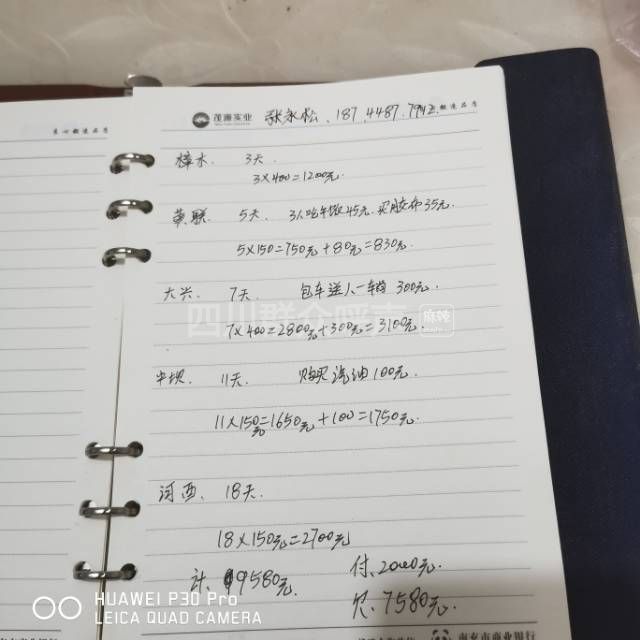 茂源实业 张永松、187、4487、7942
樟木 3天、
3×400=1200元、
黄联 5天、 3人吃午饭45元、买胶布35元、
5×150=750元+80元=830元、
大兴、 7天 包车送人一车 300元、
四川群众呼声 麻辣
7×400=2800元+300元=3100元、
牛坝、 11天 购买汽油100元、
11×150元=1650元+100=1750元、
河西、 18天、
18×150元=2700元
计、9580元、 付、2000元、
欠、7580元、
HUAWEI P30 Pro
LEICA QUAD CAMERA
南充市商业银行